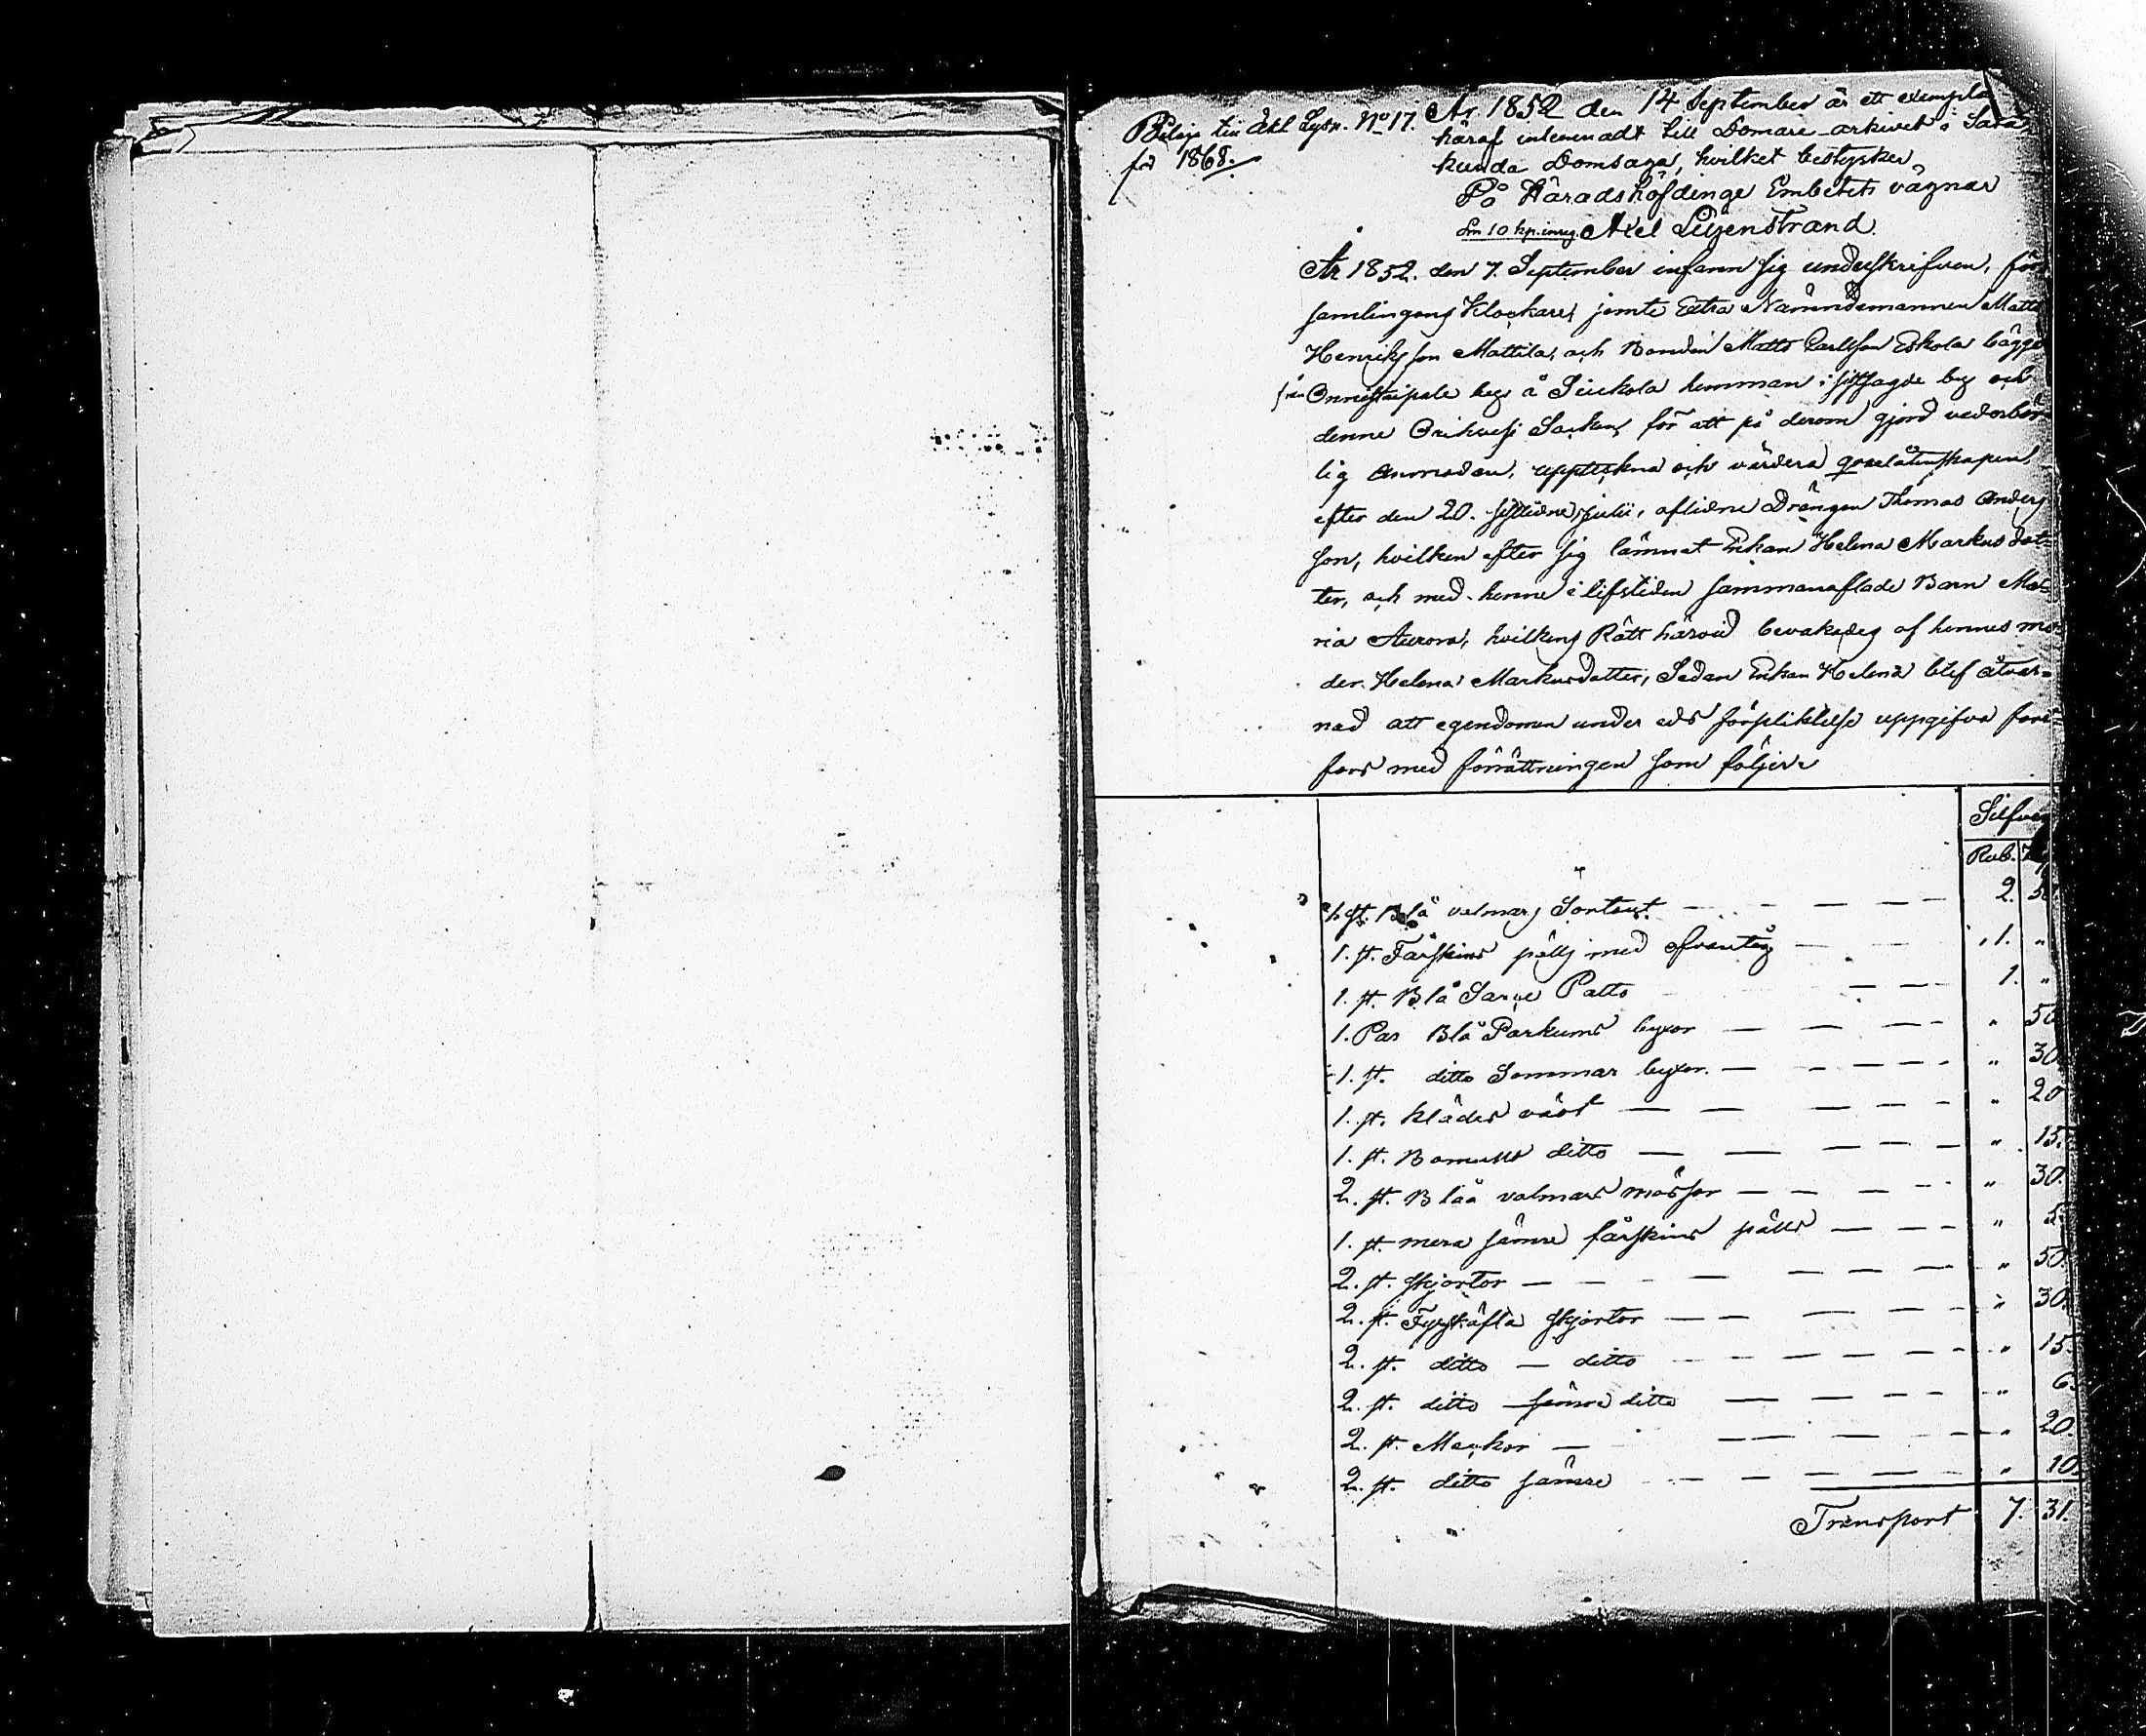 Bilaga till Äkt. Lysn. No 17.
för 1868.
År 1852 den 14 September är ett exempla
häraf inlemnadt till Domare arkivet i Sata
kunda Domsaga, hvilket bestyrker,
På Häradshöfdinge Embetets vägnar
Lösn 10 kp. Axel Liljenstrand.
År 1852. den 7. September infann sig underskrifven, för
samlingens Klockare, jemte Extra Nämndemannen Matts
Henriksson Mattila, och Bonden Matts Carlsson Eskola bägge
från Onnistaipale by, å Siukola hemman i sistsagde by och
denne Orihvesi Socken, för att på derom gjord vederbör
lig anmodan, uppteckna och värdera qvarlåtenskapen,
efter den 20. sistledne Julii, aflidne Drängen Thomas Anders
son, hvilken efter sig lämnat Enkan Helena Markusdot=
ter, och med henne i lifstiden sammanaflade Barn Ma=
ria Aurora, hvilkens Rätt härvid bevakades af hennes mo
der Helena Markusdotter, Sedan Enkan Helena blef åtvar=
nad att egendomen under eds förpliktelse uppgifva
fors med förrättningen som följer:
Silfver
Rub. Kop
1. st. Blå valmars Sortout — — — — 2. 50
1. st. Fårskins päls med — — — 1. "
1. st. Blå Sarge Palto — — — 1. "
1. Par Blå Parkums byxor — — — — " 50
1. st. ditto Sommar byxor. — — — — — " 30
1. st. klädes väst — — — — — " 20
1. st. Bomulls ditto — — — — — " 15.
2. st. Blåa valmars mössor — — — — " 30.
1. st. mera sämre fårskins päls — — — " 5
2. st. skjortor — — — — — — — " 50.
2. st. skjortor — — — — — " 30.
2. st. ditto — ditto — — — — — — " 15
2. st. ditto — sämre ditto — — — — " 6.
2. st. — — — — — " 20.
2. st. ditto sämre — — — — — " 10.
Transport 7. 31.